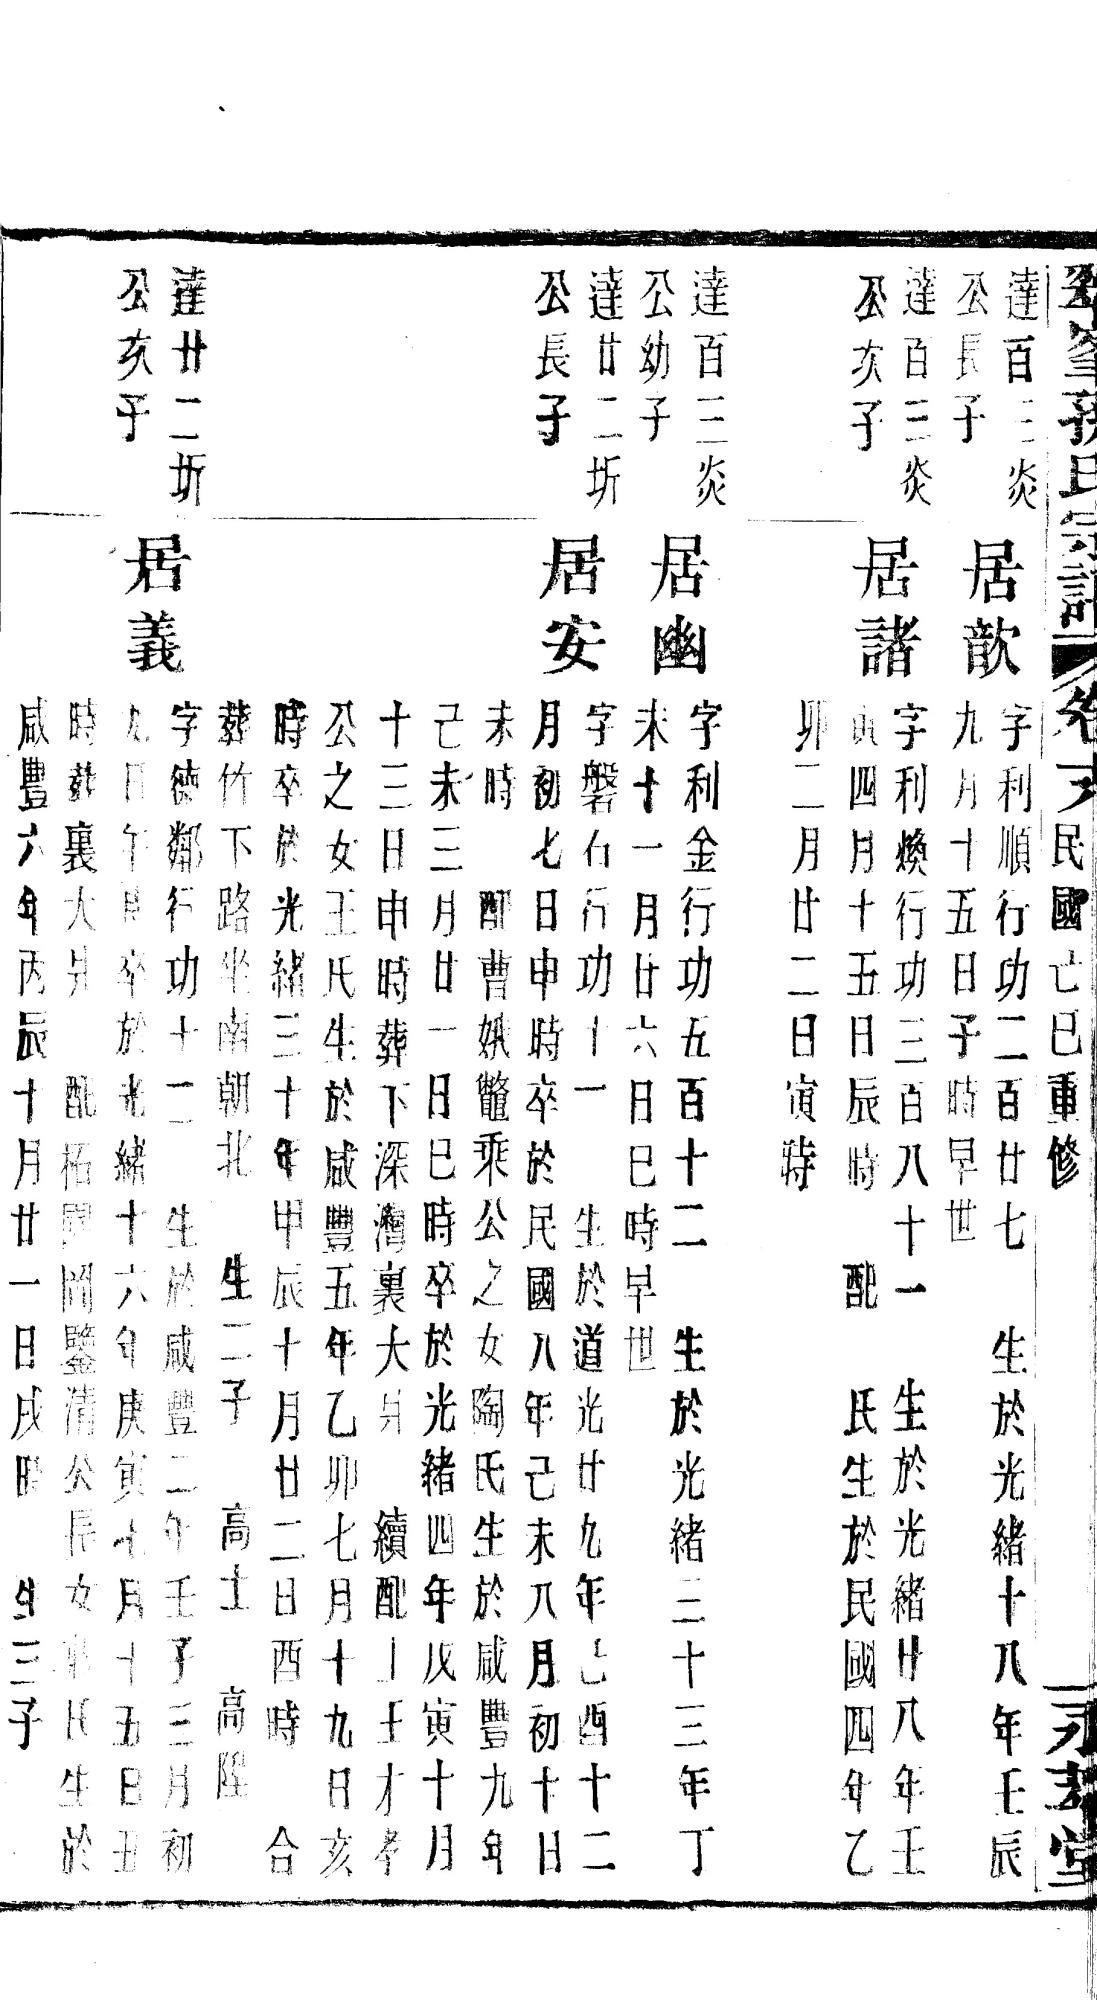 峯孫氏宗譜 卷 民國己巳重修 永孝堂
達百三炎
公長子
居歆
字利順行功二百廿七 生於光緒十八年壬辰
九月十五日子時早世
達百三炎
公次子
居諸
字利煥行功三百八十一 生於光緒廿八年壬
寅四月十五日辰時 配 氏生於民國四年乙
卯二月廿二日寅時
達百三炎
公幼子
居幽
字利金行功五百十二 生於光緒三十三年丁
未十一月廿六日巳時早世
達廿二圻
公長子
居安
字磐石行功十一 生於道光廿九年己酉十二
月初七日申時卒於民國八年己未八月初十日
未時 配曹娥鼈乘公之女陶氏生於咸豐九年
己未三月廿一日巳時卒於光緒四年戊寅十月
十三日申時葬下深灣裏大 續配上王才孝
公之女王氏生於咸豐五年乙卯七月十九日亥
時卒於光緒三十年甲辰十月廿二日酉時 合
葬竹下路坐南朝北 生二子 高士 高陞
達廿二圻
公次子
居義
字德鄰行功十二 生於咸豐二年壬子三月初
九日午時卒於光緒十六年庚寅七月十五日丑
時葬裏大 配柘 岡鑒清公長女 氏生於
咸豐六年丙辰十月廿一日戌時 生三子